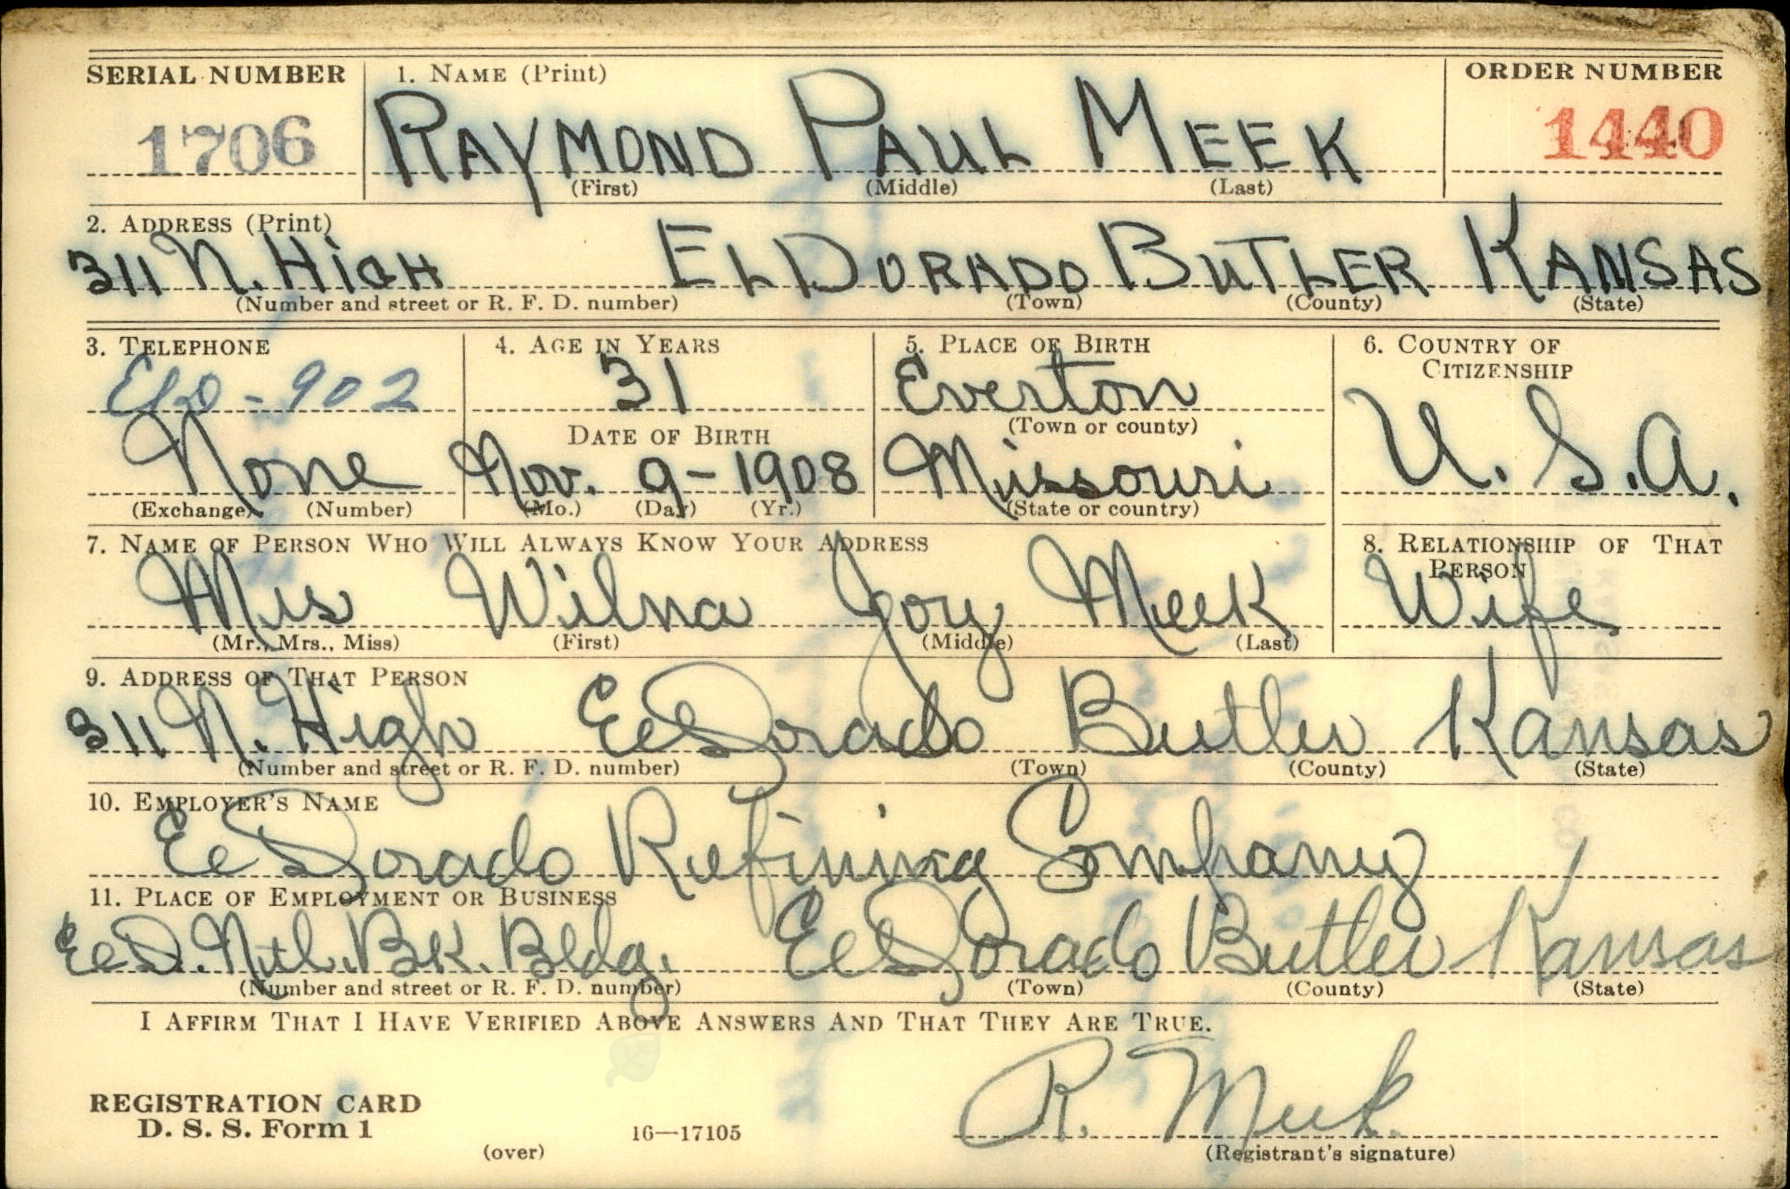 SERIAL NUMBER 1. NAME (Print) ORDER NUMBER
1706 RAYMOND PAUL MEEK 1440
(First) (Middle) (Last)
2. ADDRESS (Print)
311 N. HIGH ELDORADO BUTLER KANSAS
(Number and street or R. F. D. number) (Town) (County) (State)
3. TELEPHONE 4. AGE IN YEARS 5. PLACE OF BIRTH 6. COUNTRY OF
CITIZENSHIP
ElD - 902 31 Everton
(Town or county)
DATE OF BIRTH
None Nov. 9-1908 Missouri U.S.A.
(Exchange) (Number) (Mo.) (Day) (Yr.) (State or country)
7. NAME OF PERSON WHO WILL ALWAYS KNOW YOUR ADDRESS 8. RELATIONSHIP OF THAT
PERSON
Mrs Wilna Joy Meek Wife
(Mr., Mrs., Miss) (First) (Middle) (Last)
9. ADDRESS OF THAT PERSON
311 N. High ElDorado Butler Kansas
(Number and street or R. F. D. number) (Town) (County) (State)
10. EMPLOYER'S NAME
ElDorado Refining Company
11. PLACE OF EMPLOYMENT OR BUSINESS
ElD. Natl. BK. Bldg. ElDorado Butler Kansas
(Number and street or R. F. D. number) (Town) (County) (State)
I AFFIRM THAT I HAVE VERIFIED ABOVE ANSWERS AND THAT THEY ARE TRUE.
REGISTRATION CARD
D. S. S. Form 1 16—17105 R. Meek
(over) (Registrant's signature)